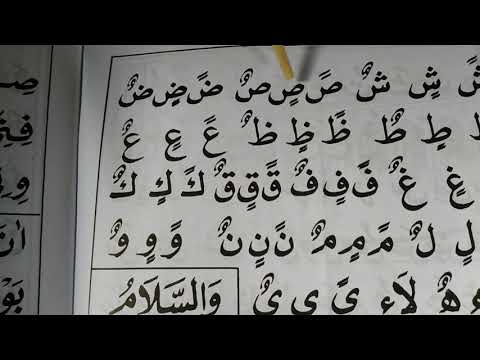 شً شٍ شٌ صً صٍ صٌ ضً ضٍ ضٌ
طٍ طٌ ظً ظٍ ظٌ عً عٍ عٌ
غٍ غٌ فً فٍ فٌ قً قٍ قٌ كً كٍ كٌ
لٍ لٌ مً مٍ مٌ نً نٍ نٌ وً وٍ وٌ
هٌ يً يٍ يٌ
وَالسَّلَامُ